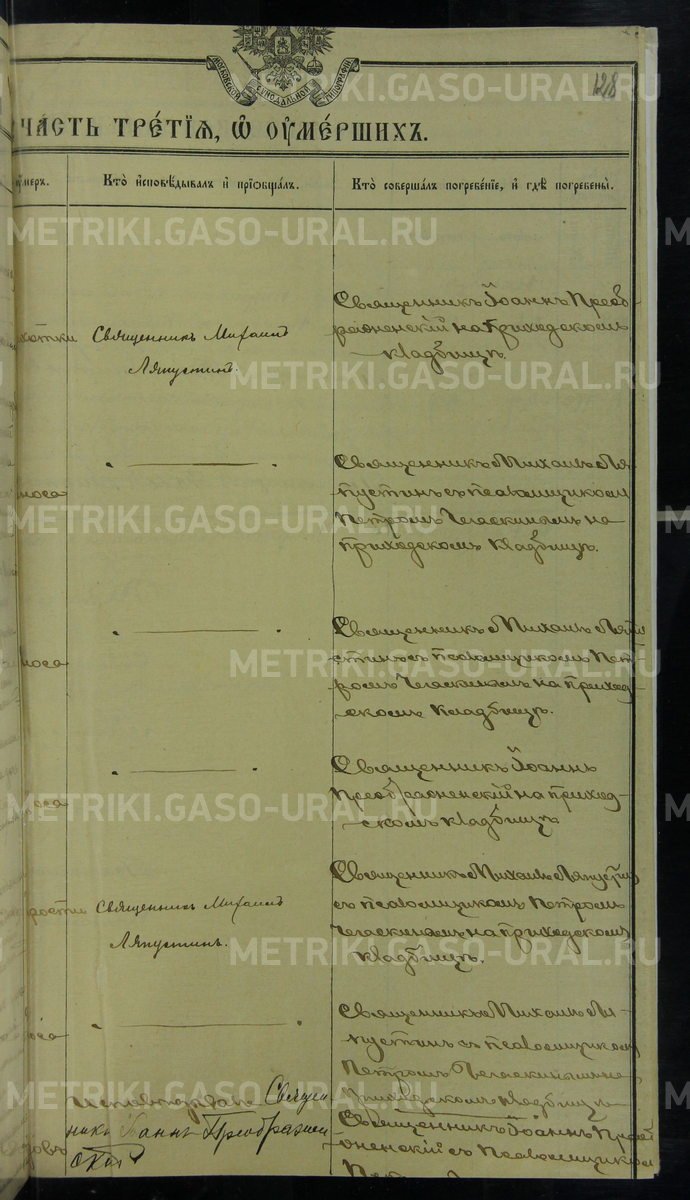 МОСКОВСКОЙ СѴНОДАЛЬНОЙ ТИПОГРАФІИ
128
ЧА́СТЬ ТРЕ́ТІѦ, Ѡ҆ ОУ҆МЕ́РШИХЪ.
ᲂу҆́меръ.
Кто̀ и҆сповѣ́дывалъ и҆ прїобща́лъ.
Кто̀ соверша́лъ погребе́нїе, и҆ гдѣ̀ погребены̀.
Священникъ Михаилъ
Ляпустинъ.
Священникъ Іоаннъ Преоб
раженскій на приходскомъ
кладбищѣ.
носа
Священникъ Михаилъ Ля
пустинъ съ псаломщикомъ
Петромъ на
приходскомъ кладбищѣ.
носа
Священникъ Михаилъ Ляпу
стинъ съ псаломщикомъ Пет
ромъ на приход
скомъ кладбищѣ.
Священникъ Іоаннъ
Преображенскій на приход
скомъ кладбищѣ
Священникъ Михаилъ
Ляпустинъ.
Священникъ Михаилъ Ляпустинъ
съ псаломщикомъ Петромъ
на приходскомъ
кладбищѣ.
Священникъ Михаилъ Ля
пустинъ съ псаломщикомъ
Петромъ
приходскомъ кладбищѣ
Священ
никъ Іоаннъ Преображен
скій
Священникъ Іоаннъ Преоб
женскій съ псаломщикомъ
METRIKI.GASO-URAL.RU